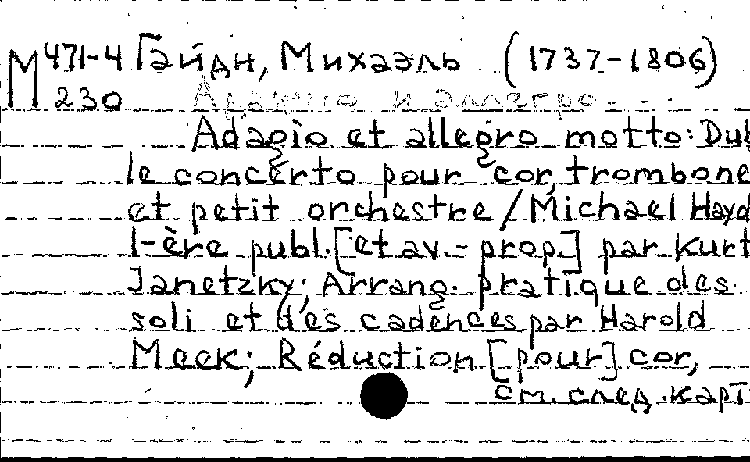 М 471-4 Гайдн, Михаэль (1737-1806)
230 Адажио и аллегро...
Adagio et allegro motto: Dub
le concerto pour cor, trombone
et petit orchestre / Michael Hayd
1-ère publ. [et av.-prop.] par Kurt
Janetzky; Arrang. pratique des
soli et des cadences par Harold
Meek; Réduction [pour] cor,
см. след. карт